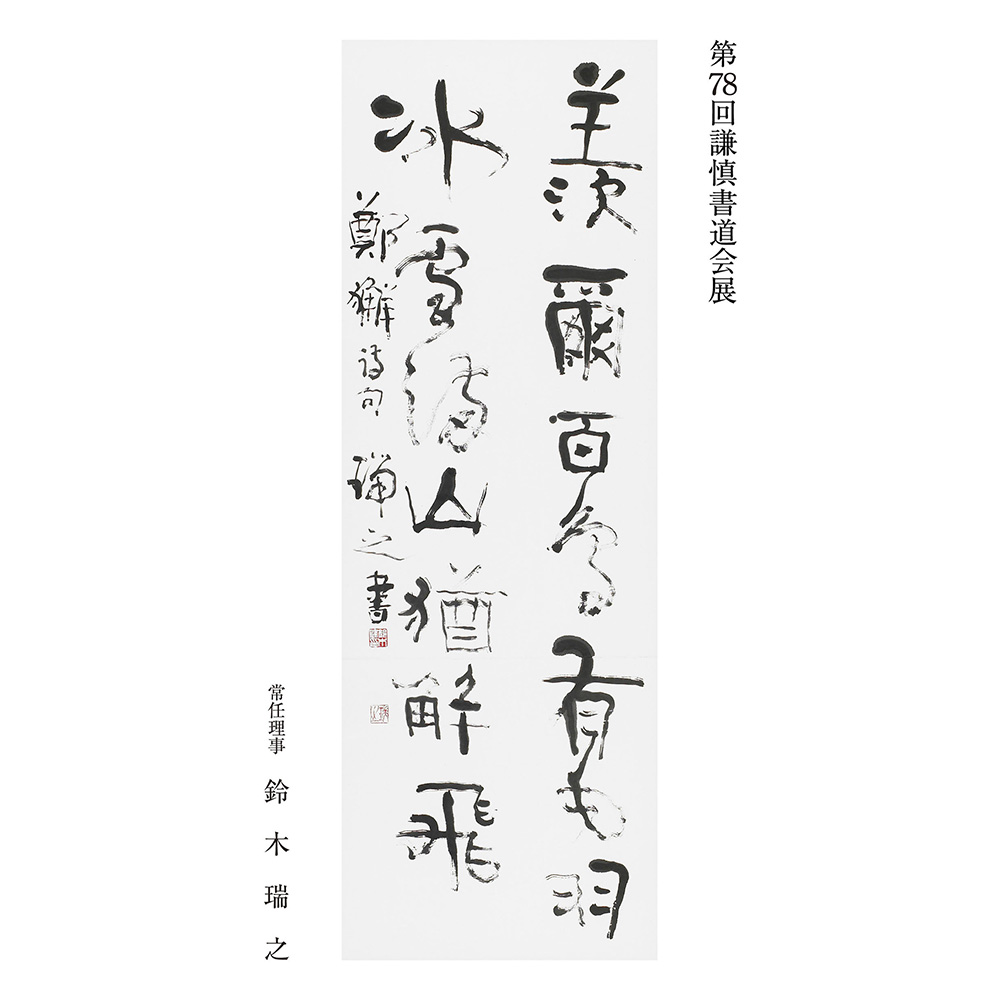 第78回謙慎書道会展
羨爾百鳥有毛羽
冰雪満山猶解飛
鄭獬詩句 瑞之書
常任理事 鈴木瑞之